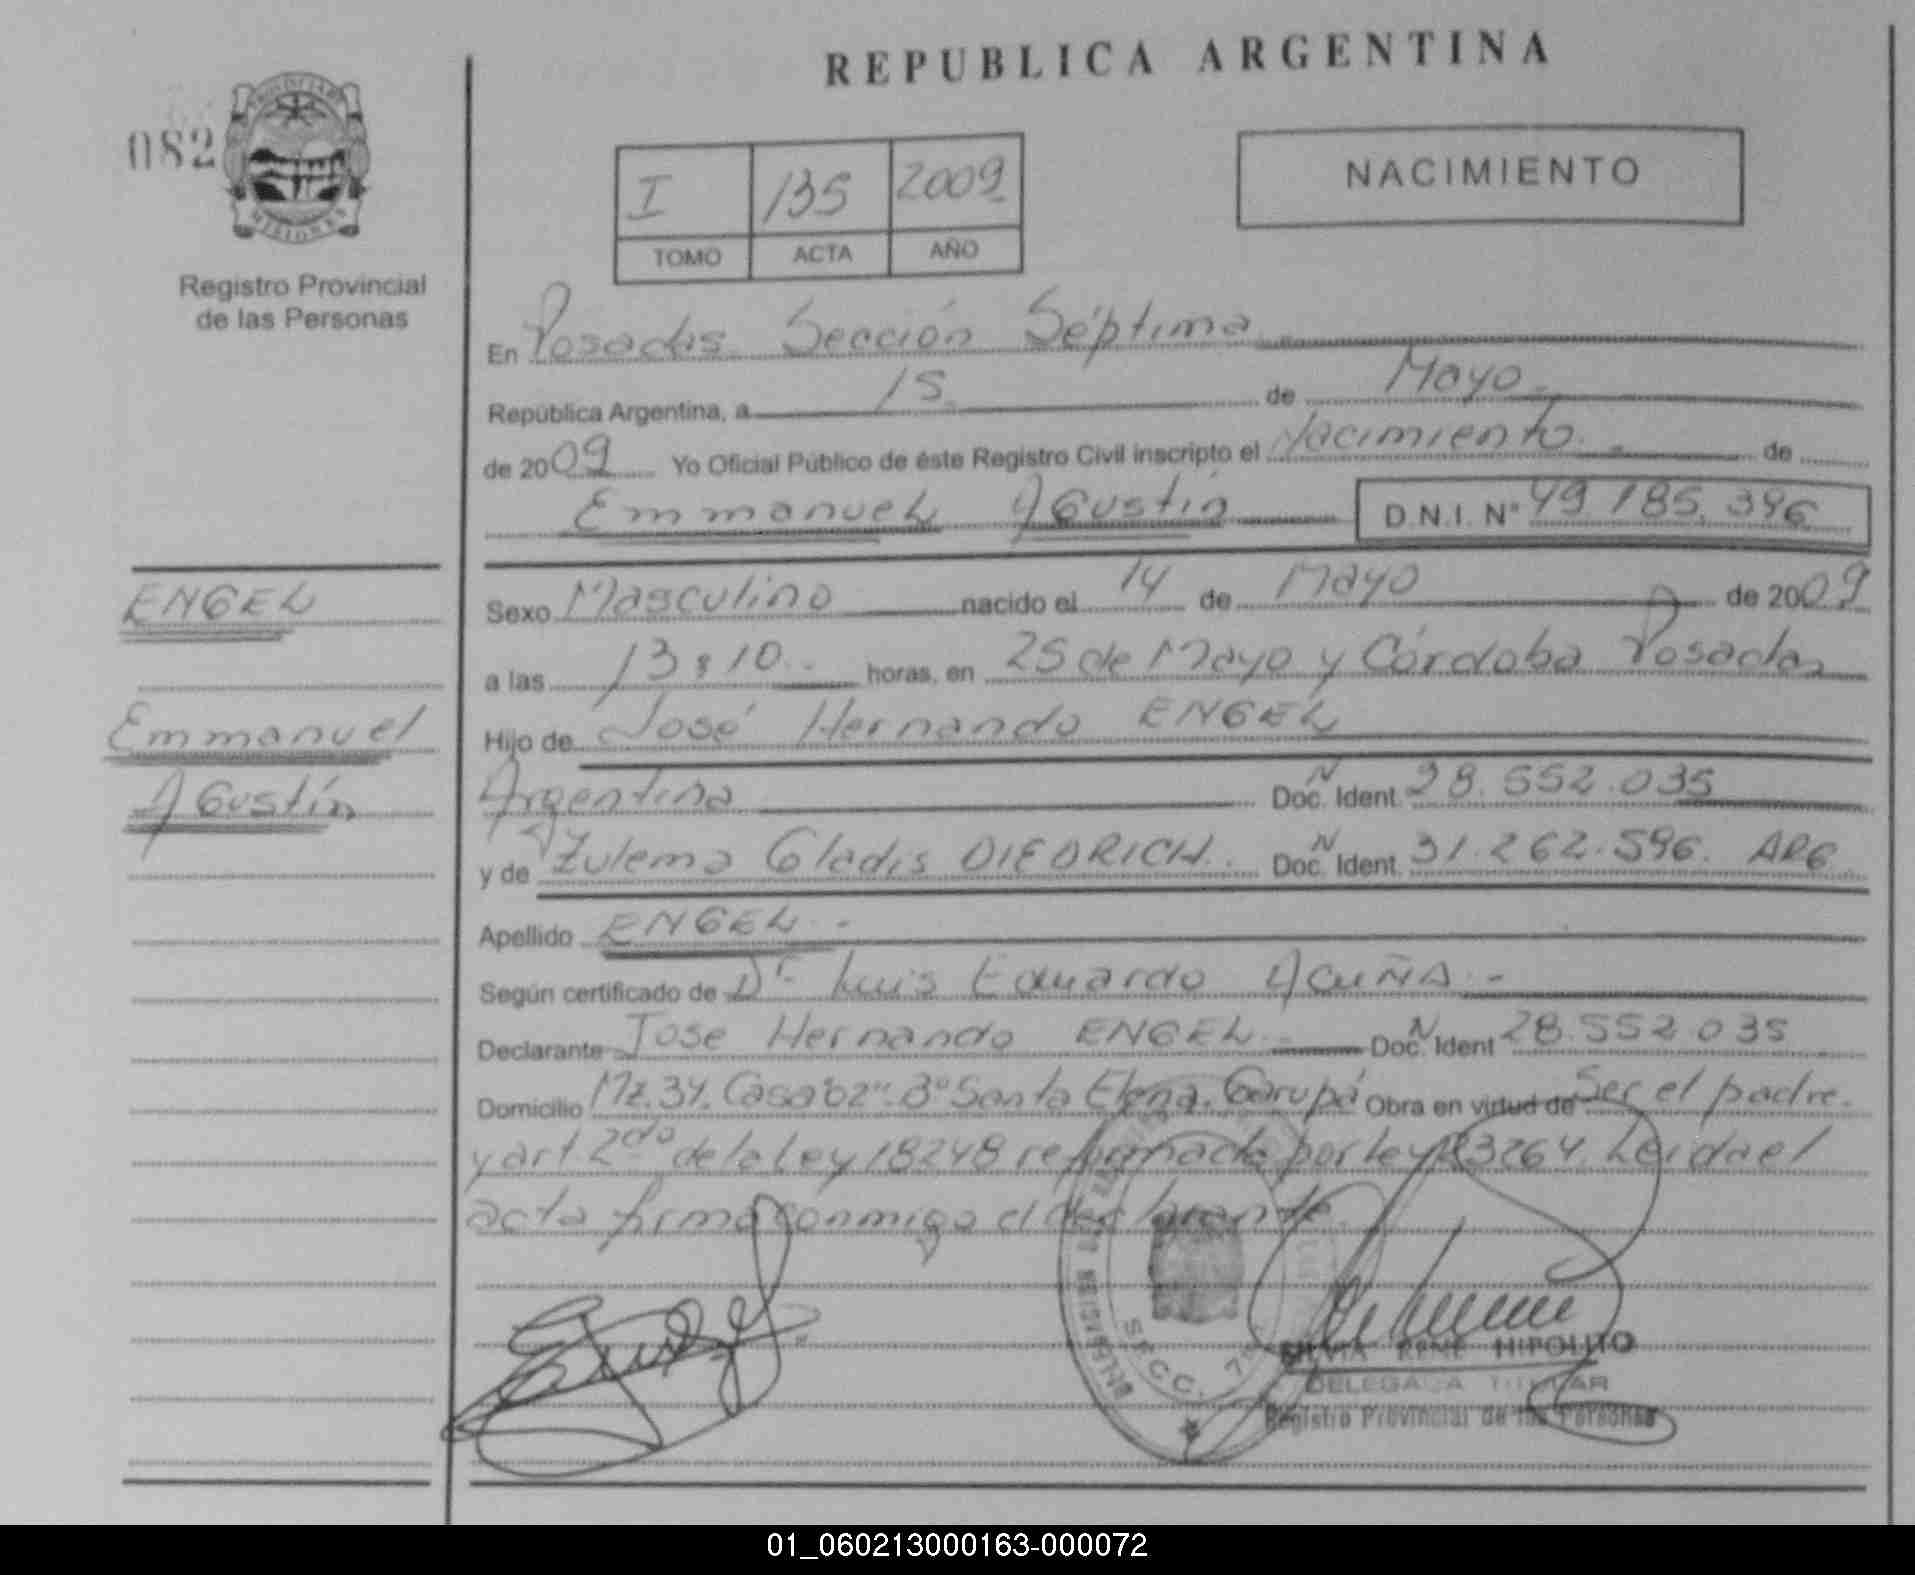 REPUBLICA ARGENTINA
082
PROVINCIA DE
MISIONES
Registro Provincial
de las Personas
I 135 2009
TOMO ACTA AÑO
NACIMIENTO
En Posadas Sección Séptima
República Argentina, a 15 de Mayo
de 2009 Yo Oficial Público de éste Registro Civil inscripto el Nacimiento de
Emmanuel Agustín D.N.I. Nº 49.185.396
ENGEL
Emmanuel
Agustín
Sexo Masculino nacido el 14 de Mayo de 2009
a las 13:10 horas, en 25 de Mayo y Córdoba Posadas
Hijo de José Hernando ENGEL
Argentina Doc. N Ident. 28.552.035
y de Zulema Gladis DIEDRICH. Doc. N Ident. 31.262.596. ARG.
Apellido ENGEL.-
Según certificado de Dr. Luis Eduardo ACUÑA.-
Declarante Jose Hernando ENGEL.- Doc. N Ident 28.552.035
Domicilio Mz.34. Casa Bº Santa Elena. Garupá Obra en virtud de Ser el padre.
y art. 2do de la Ley 18248 reformada por ley 23264. Leida el
acta firma conmigo el declarante.
SECC. 7
SILVIA RENE HIPOLITO
DELEGADA TITULAR
Registro Provincial de las Personas
01_060213000163-000072